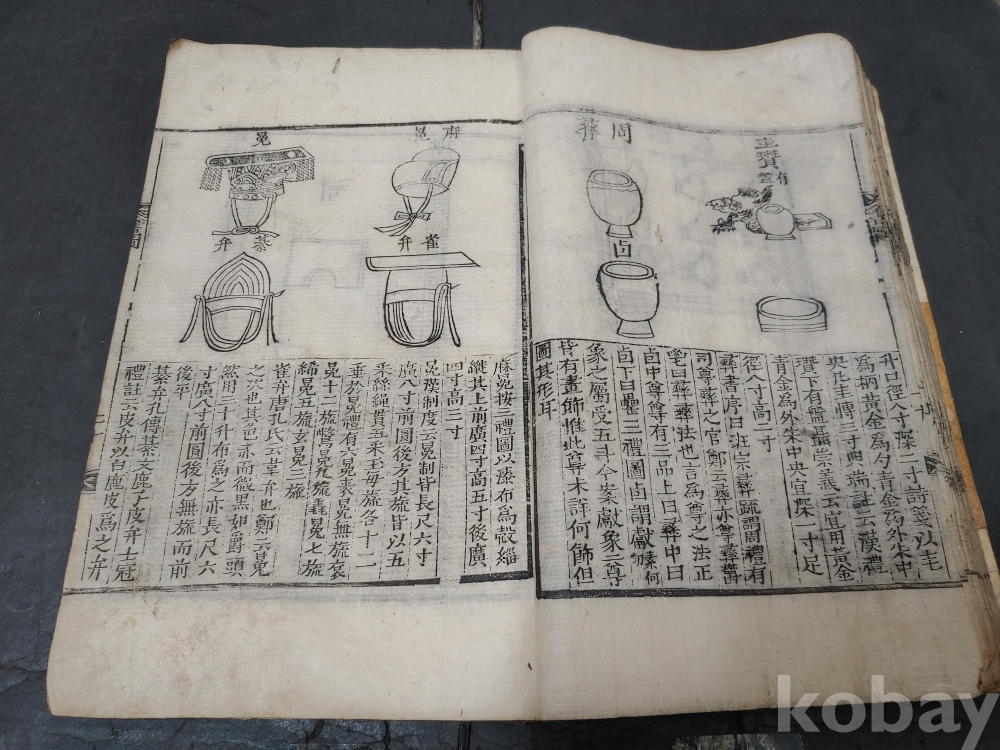 圭瓚
有盤
周彝
卣
升口徑八寸深二寸詩箋以圭
為柄黃金為勺青金為外朱中
央凡圭博三寸典瑞註云漢禮
瓚下有盤聶崇義云宜用黃金
青金為外朱中央宜深一寸足
徑八寸高二寸
彝書序曰班宗彝疏謂周禮有
司尊彝之官鄭云彝亦尊彝鬱
鬯曰彝彝法也言為尊之法正
卣中尊尊有三品上曰彝中曰
卣下曰罍三禮圖卣謂獻象何
象之屬受五斗今案獻象之尊
皆有畫飾惟此尊未詳何飾但
圖其形耳
麻冕
冕
雀弁
綦弁
麻冕按三禮圖以漆布為殼緇
縱其上前廣四寸高五寸後廣
四寸高三寸
冕璪制度云冕制皆長尺六寸
廣八寸前圓後方其旒皆以五
采絲繩貫五采玉每旒各十二
垂於冕禮有六冕裘冕無旒袞
冕十二旒鷩冕九旒毳冕七旒
絺冕五旒玄冕三旒
雀弁唐孔氏云雀弁也鄭云冕
之次也其色赤而微黑如爵頭
然用三十升布為之亦長尺六
寸廣八寸前圓後方無旒而前
後平
綦弁孔傳綦文鹿子皮弁士冠
禮註云皮弁以白鹿皮為之弁
kobay